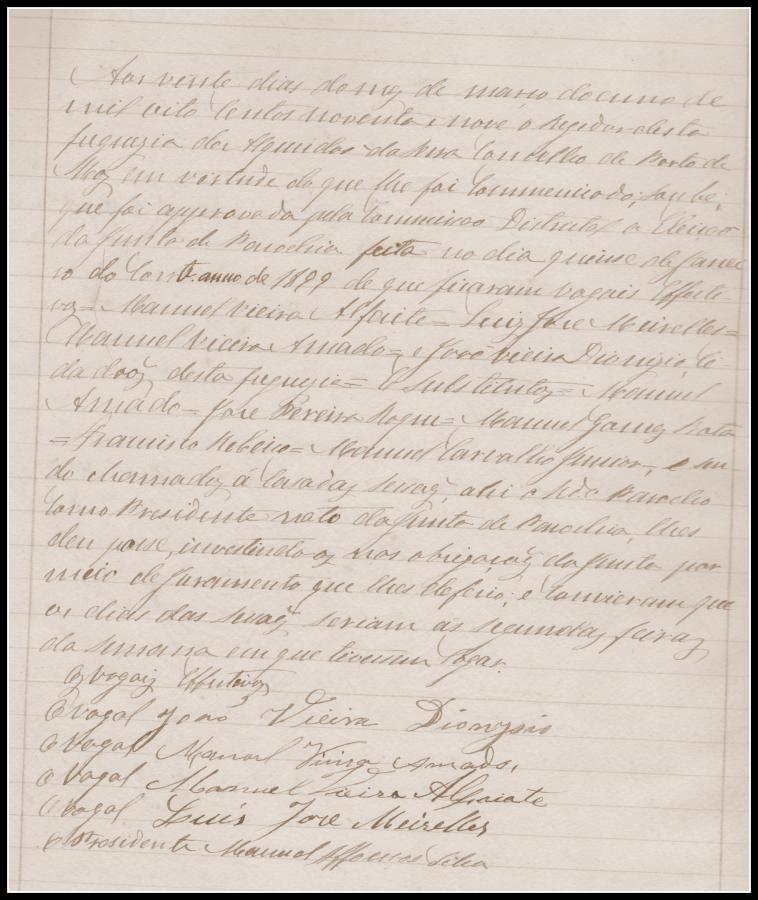 Aos vinte dias do mez de março do anno de
mil oito centos noventa e nove o Regedor desta
freguezia das Alquidão da Serra Concelho de Porto de
Moz em vertude do que lhe foi Communicado, soube,
que foi approvada pela Commissão Districtal a Eleição
da Junta de Parochia feita no dia quinze de Janei
ro do Corrte. anno de 1899 de que ficaram vogais Effecti-
vos= Manuel Vieira Alfaiate= Luiz Jose Meirelles=
Manuel Vieira Amado= e José Vieira Dionizio, Ci-
dadãos desta freguezia= e Substitutos= Manuel
Amado= Jose Pereira Roque= Manuel Gomes Rato
=Francisco Ribeiro= Manuel Carvalho Junior, e sen-
do chamados á Casa das Sessões, ahi o Rdo. Parocho
Como Presidente nato da Junta de Parochia, lhes
deu posse, investindo os nas obrigações da Junta por
meio de Juramento que lhes deferio; e convieram que
os dias das Sessões seriam as segundas feiras
da semana em que tivessem logar.
Os vogais Effectivos
O vogal João Vieira Dionysio
O Vogal Manoel Vieira Amado,
O Vogal Manuel Vieira Alfaiate
O vogal Luis Jose Meirelles
O Presidente Manuel Affonso Silva